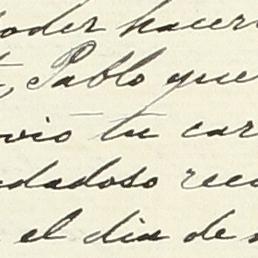 poder hacer
, Pablo que
vió tu car
dadoso rec
el dia de